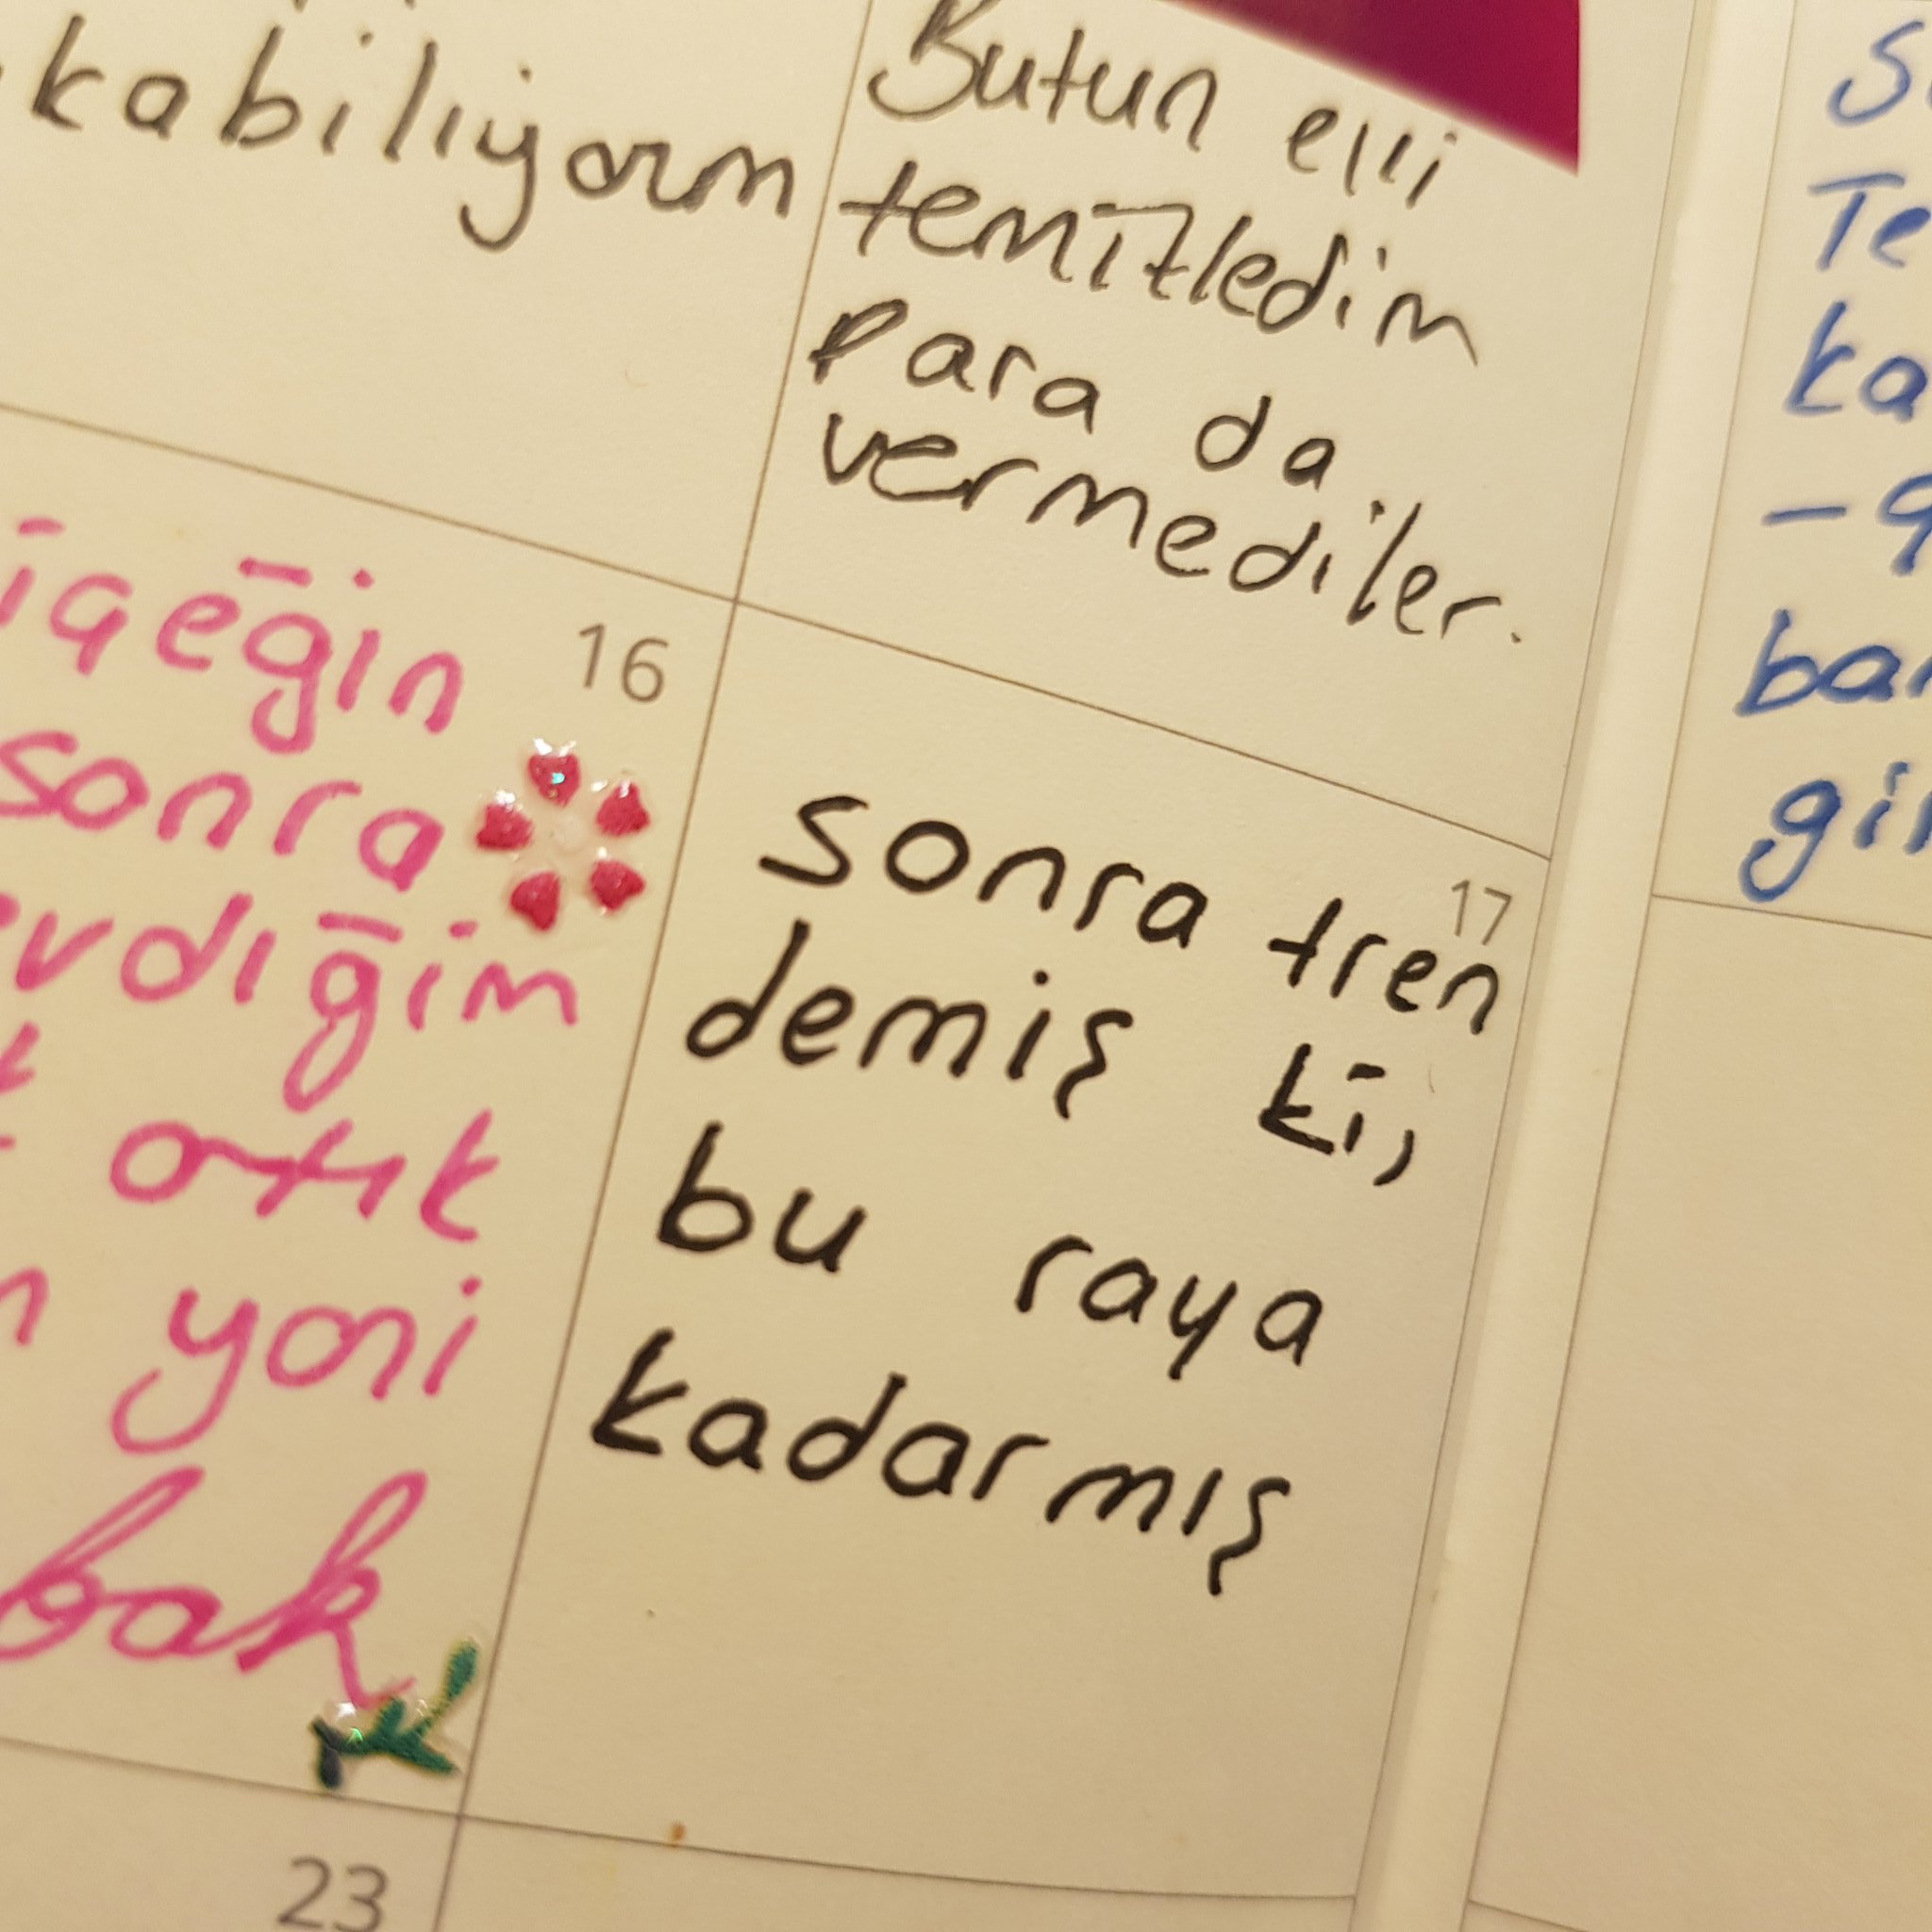 kabiliyorum
Butun elli
temizledim
para da
vermediler.
16
çiçeğin
sonra
sevdiğim
artık
yani
bak
17
sonra tren
demiş ki,
bu raya
kadarmış
23
Te
ka